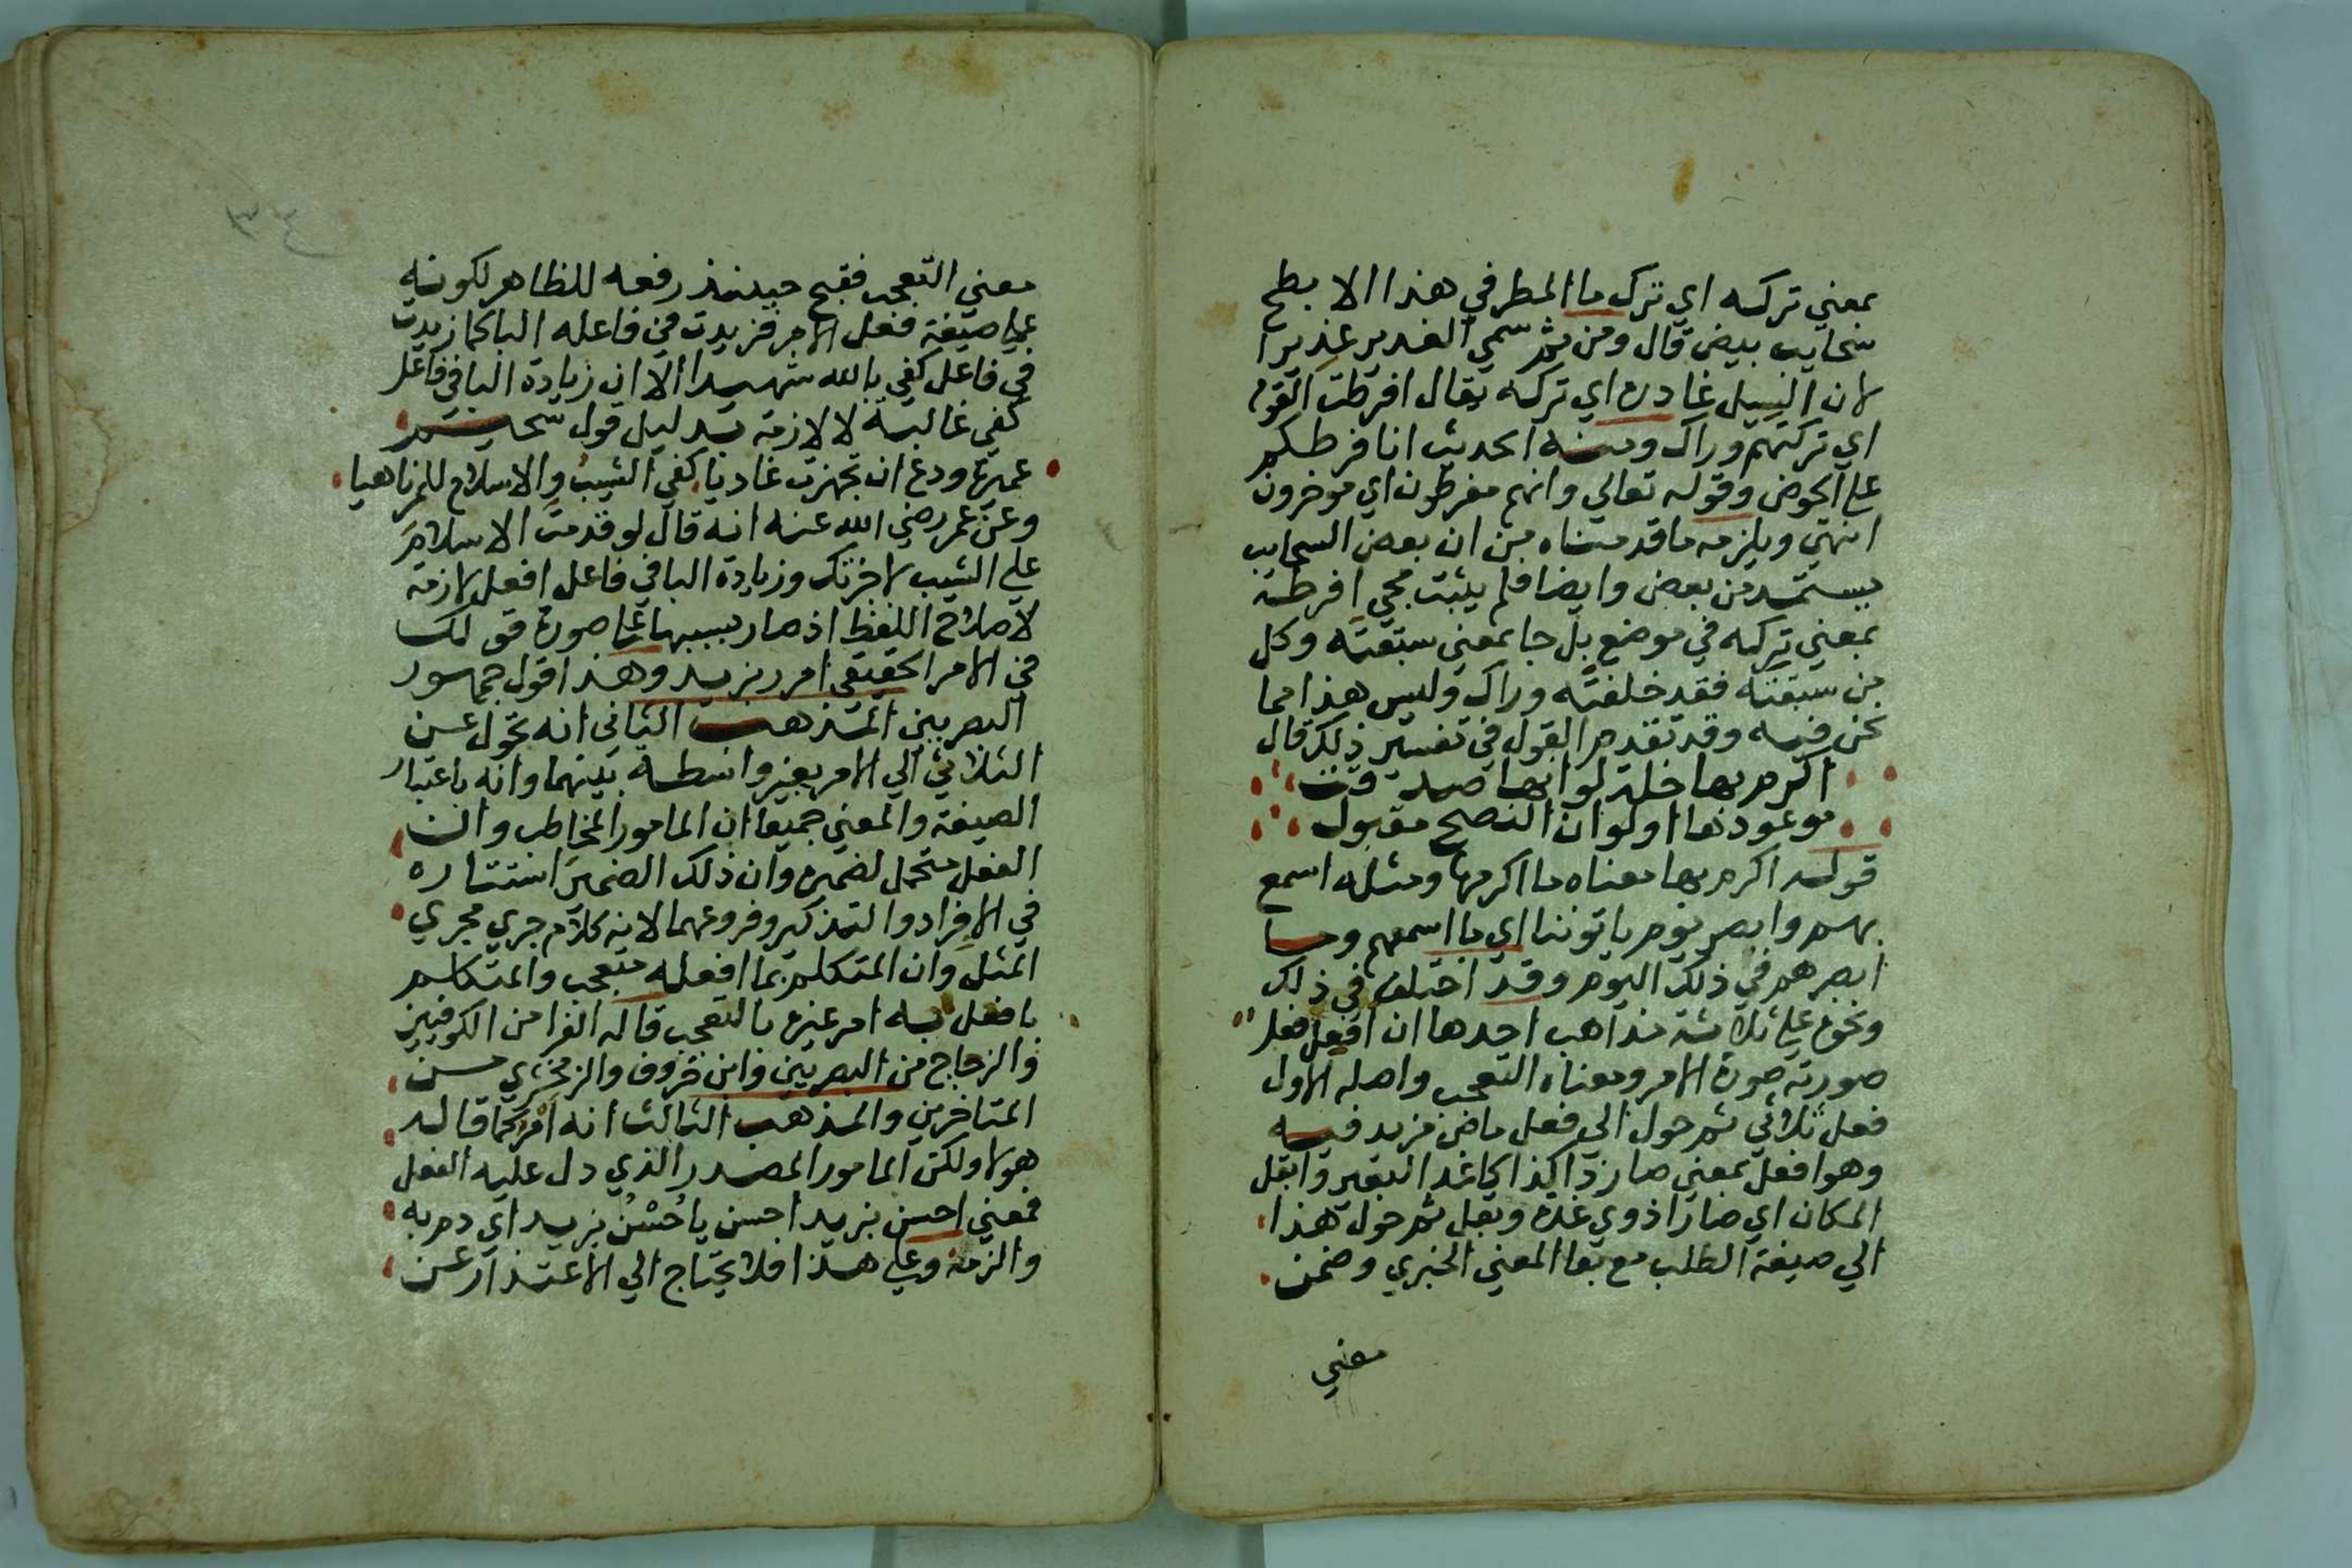 بمعني تركه اي ترك ما المطر في هذا الابطح
سحايب بيض قال ومن ثم سمي الغدير غديرا
لان السيل غادره اي تركه يقال افرطت القوم
اي تركتهم وراك ومنه الحديث انا فرطكم
علي الحوض وقوله تعالي وانهم مفرطون اي موخرون
انتهي ويلزمه ما قدمناه من ان بعض السحايب
يستمد من بعض وايضا فلم يثبت مجي افرطته
بمعني تركه في موضع بل جا بمعني سبقته وكل
من سبقته فقد خلفته وراك وليس هذا مما
نحن فيه وقد تقدم القول في تفسير ذلك قال
اكرم بها خلة لو انها صدقت
موعودها او لو ان النصح مقبول
قوله اكرم بها معناه ما اكرمها ومثله اسمع
بهم وابصر يوم ياتوننا اي ما اسمعهم وما
ابصرهم في ذلك اليوم وقد اختلف في ذلك
ونحوه علي ثلاثة مذاهب احدها ان افعل فعل
صورته صورة الامر ومعناه التعجب واصله الاول
فعل ثلاثي ثم حول الي فعل ماض مزيد فيه
وهو افعل بمعني صار ذا كذا كاغد البعير وابقل
المكان اي صارا ذوي غدة وبقل ثم حول هذا
الي صيغة الطلب مع بقا المعني الخبري وضمن
معني
٣٤
معني التعجب فقبح حينئذ رفعه للظاهر لكونه
علي صيغة فعل الامر فزيدت في فاعله البا كما زيدت
في فاعل كفي بالله شهيدا الا ان زيادة البا في فاعل
كفي غالبة لا لازمة بدليل قول سحيم
عميرة ودع ان تجهزت غاديا كفي الشيب والاسلام للمرناهيا
وعن عمر رضي الله عنه انه قال لو قدمت الاسلام
علي الشيب لاجزتك وزيادة البا في فاعل افعل لازمة
لاصلاح اللفظ اذ صار بسببها علي صورة قولك
في الامر الحقيقي امرر بزيد وهذا قول جمهور
البصريين المذهب الثاني انه تحول عن
الثلاثي الي الامر بغير واسطة بينهما وانه باعتبار
الصيغة والمعني جميعا ان المامور المخاطب وان
الفعل متحمل لضميره وان ذلك الضمير استتاره
في الافراد والتذكير وفروعهما لانه كلام جري مجري
المثل وان المتكلم بما افعله متعجب والمتكلم
بافعل به امر غيره بالتعجب قاله الفرا من الكوفيين
والزجاج من البصريين وابن خروف والزمخشري من
المتاخرين والمذهب الثالث انه امر كما قاله
هولا ولكن المامور المصدر الذي دل عليه الفعل
فمعني احسن بزيد احسن يا حُسْنُ بزيد اي دم به
والزمه وعلي هذا فلا يحتاج الي الاعتذار عن